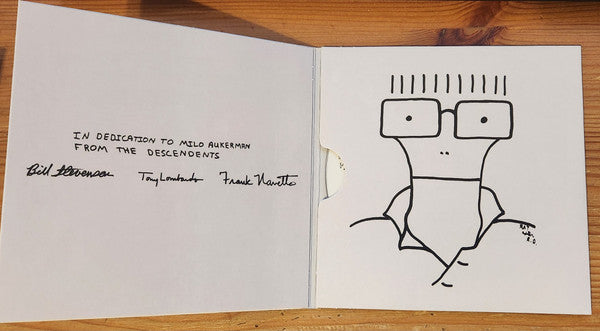 IN DEDICATION TO MILO AUKERMAN
FROM THE DESCENDENTS
Bill Stevenson Tony Lombardo Frank Navetta